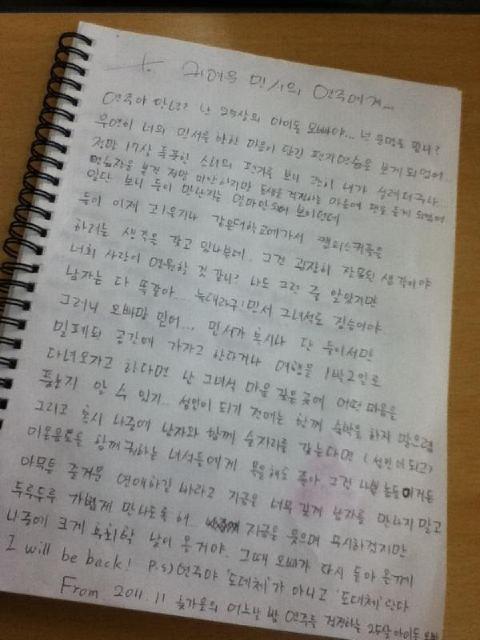 +. 귀여운 민서의 연주에게...
연주야 안녕? 난 25살의 아이돌 오빠야... 넌 무명을 믿니?
우연히 너의 민서를 향한 마음이 담긴 편지연습을 보게 되었어
정말 17살 풋풋한 소녀의 편지를 보니 괜히 내가 설레더구나
연습장을 본건 정말 미안하지만 동생을 걱정하는 마음에 펜을 들게 되었어
일단 보니 둘이 만난지는 얼마안되어 보이던데
둘이 이제 고1윤지나 같은대학교에가서 캠퍼스커플을
하려는 생각을 갖고 있나본데.. 그건 굉장히 잘못된 생각이야
너희 사랑이 영원할 것 같니? 나도 그런 줄 알았지만
남자는 다 똑같아... 늑대라구! 민서 그녀석도 짐승이야
그러니 오빠말 믿어... 민서가 혹시나 단 둘이서만
밀폐된 공간에 가자고 한다거나 여행을 1박2일로
다녀오자고 하다면 난 그녀석 마음 깊은 곳에 어떤 마음을
품는지 알 수 있지... 성인이 되기 전에는 함께 숙박을 하지 말으렴
그리고 혹시 나중에 남자와 함께 술자리를 갖는다면 (성인이 되고)
미운용도를 함께 권하는 녀석들에게 욕을해도 좋아 그건 나쁜 놈들이거든
아무튼 즐거운 연애하길 바라고 지금은 너무 깊게 남자를 만나지 말고
두루두루 가볍게 만나도록 해.. 지금은 웃으며 무시하겠지만
나중에 크게 후회할 날이 올거야. 그때 오빠가 다시 돌아 올께
I will be back! P.s) 연주야 '도데체'가 아니고 '도대체'란다
From 2011.11 늦가을의 어느날 밤 연주를 걱정하는 25살아이돌 오빠